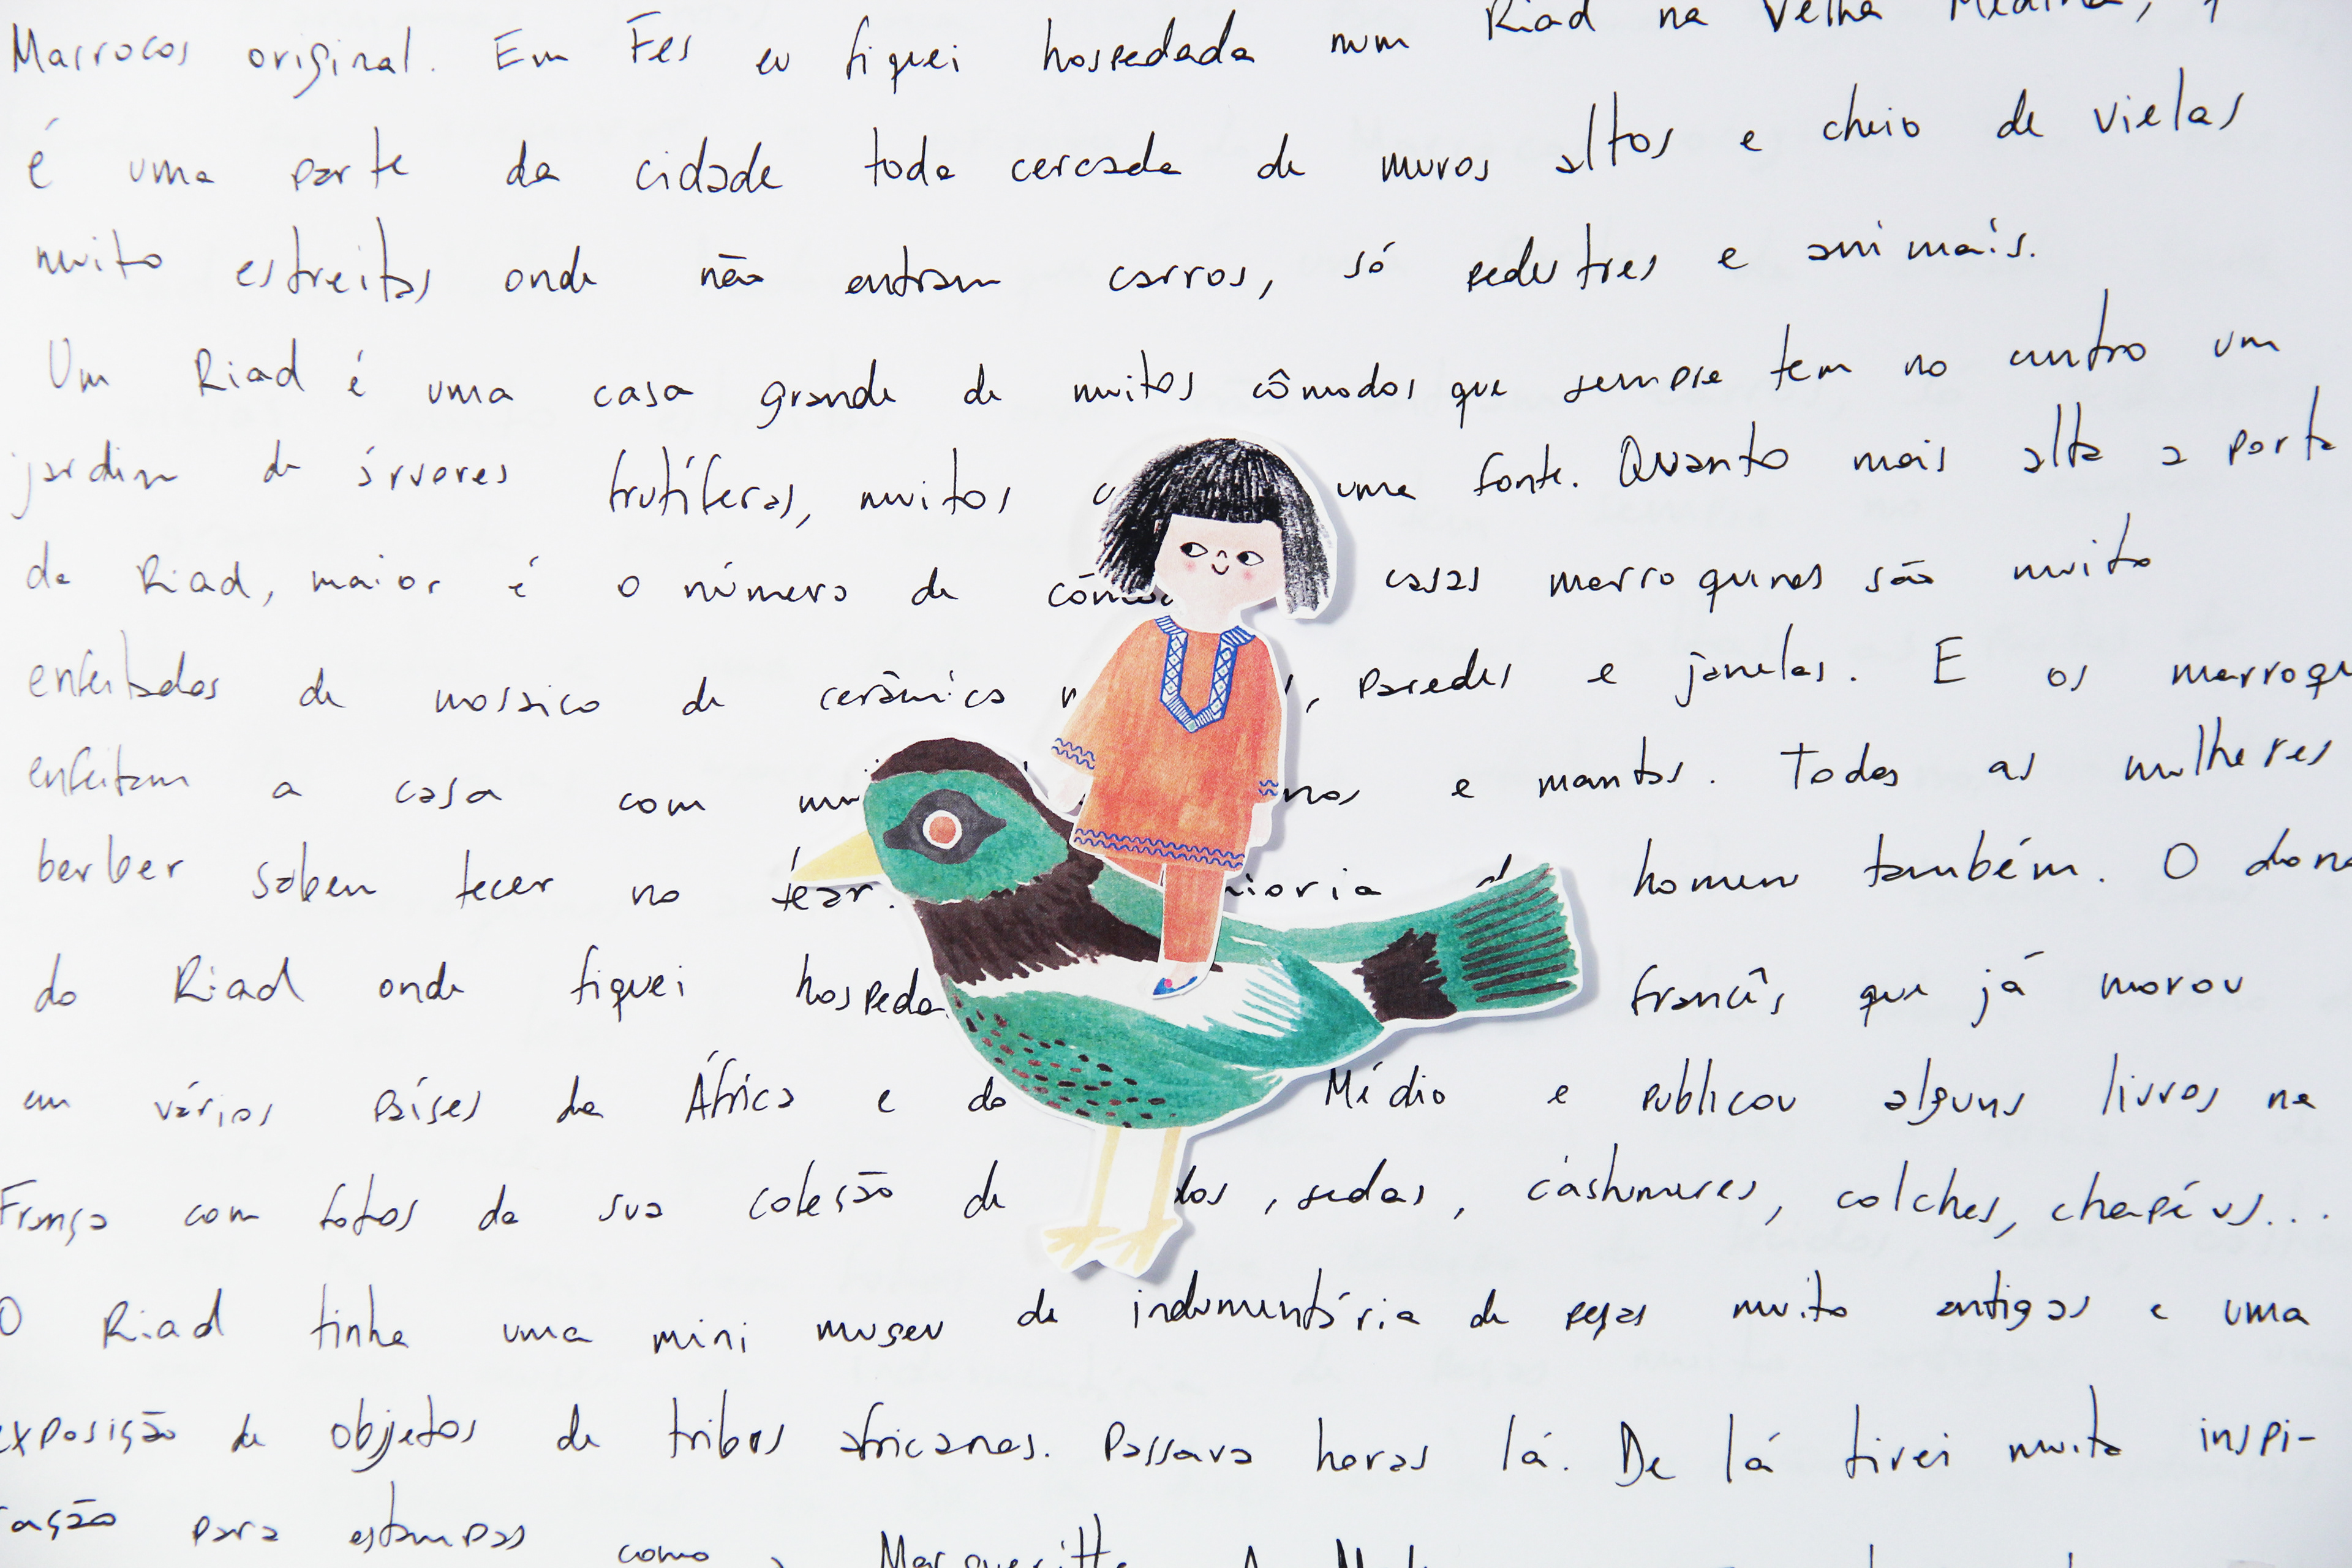 Marrocos original. Em Fes eu fiquei hospedada num Riad na Velha Medina,
é uma parte da cidade toda cercada de muros altos e cheio de vielas
muito estreitas onde não entram carros, só pedestres e animais.
Um Riad é uma casa grande de muitos cômodos que sempre tem no centro um
jardim de árvores frutíferas, muitos uma fonte. Quanto mais alta a porta
da Riad, maior é o número de casas marroquinas são muito
enfeitadas de mosaico de cerâmica paredes e janelas. E os marroqu
enfeitam a casa com e mantas. Todas as mulheres
berber sabem tecer no tear. homens também. O dono
do Riad onde fiquei hospeda francês que já morou
em vários países da África e do Médio e publicou alguns livros na
França com fotos da sua coleção de , sedas, cashmeres, colches, chapéus...
O Riad tinha uma mini museu de indumentária de peças muito antigas e uma
exposição de objetos de tribos africanas. Passava horas lá. De lá tirei muita inspi-
ração para estampas como a